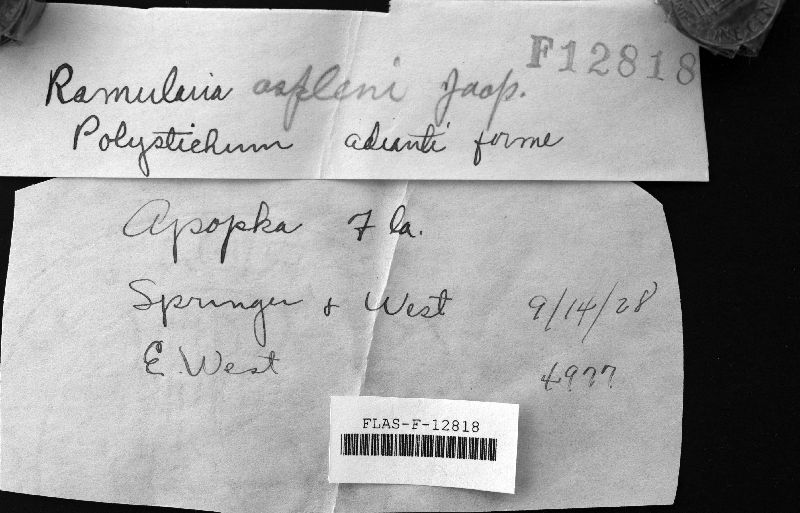 F12818
Ramularia aspleni Jaap.
Polystichum adianti forme
Apopka Fla.
Springer & West 9/14/28
E. West 4977
FLAS-F-12818